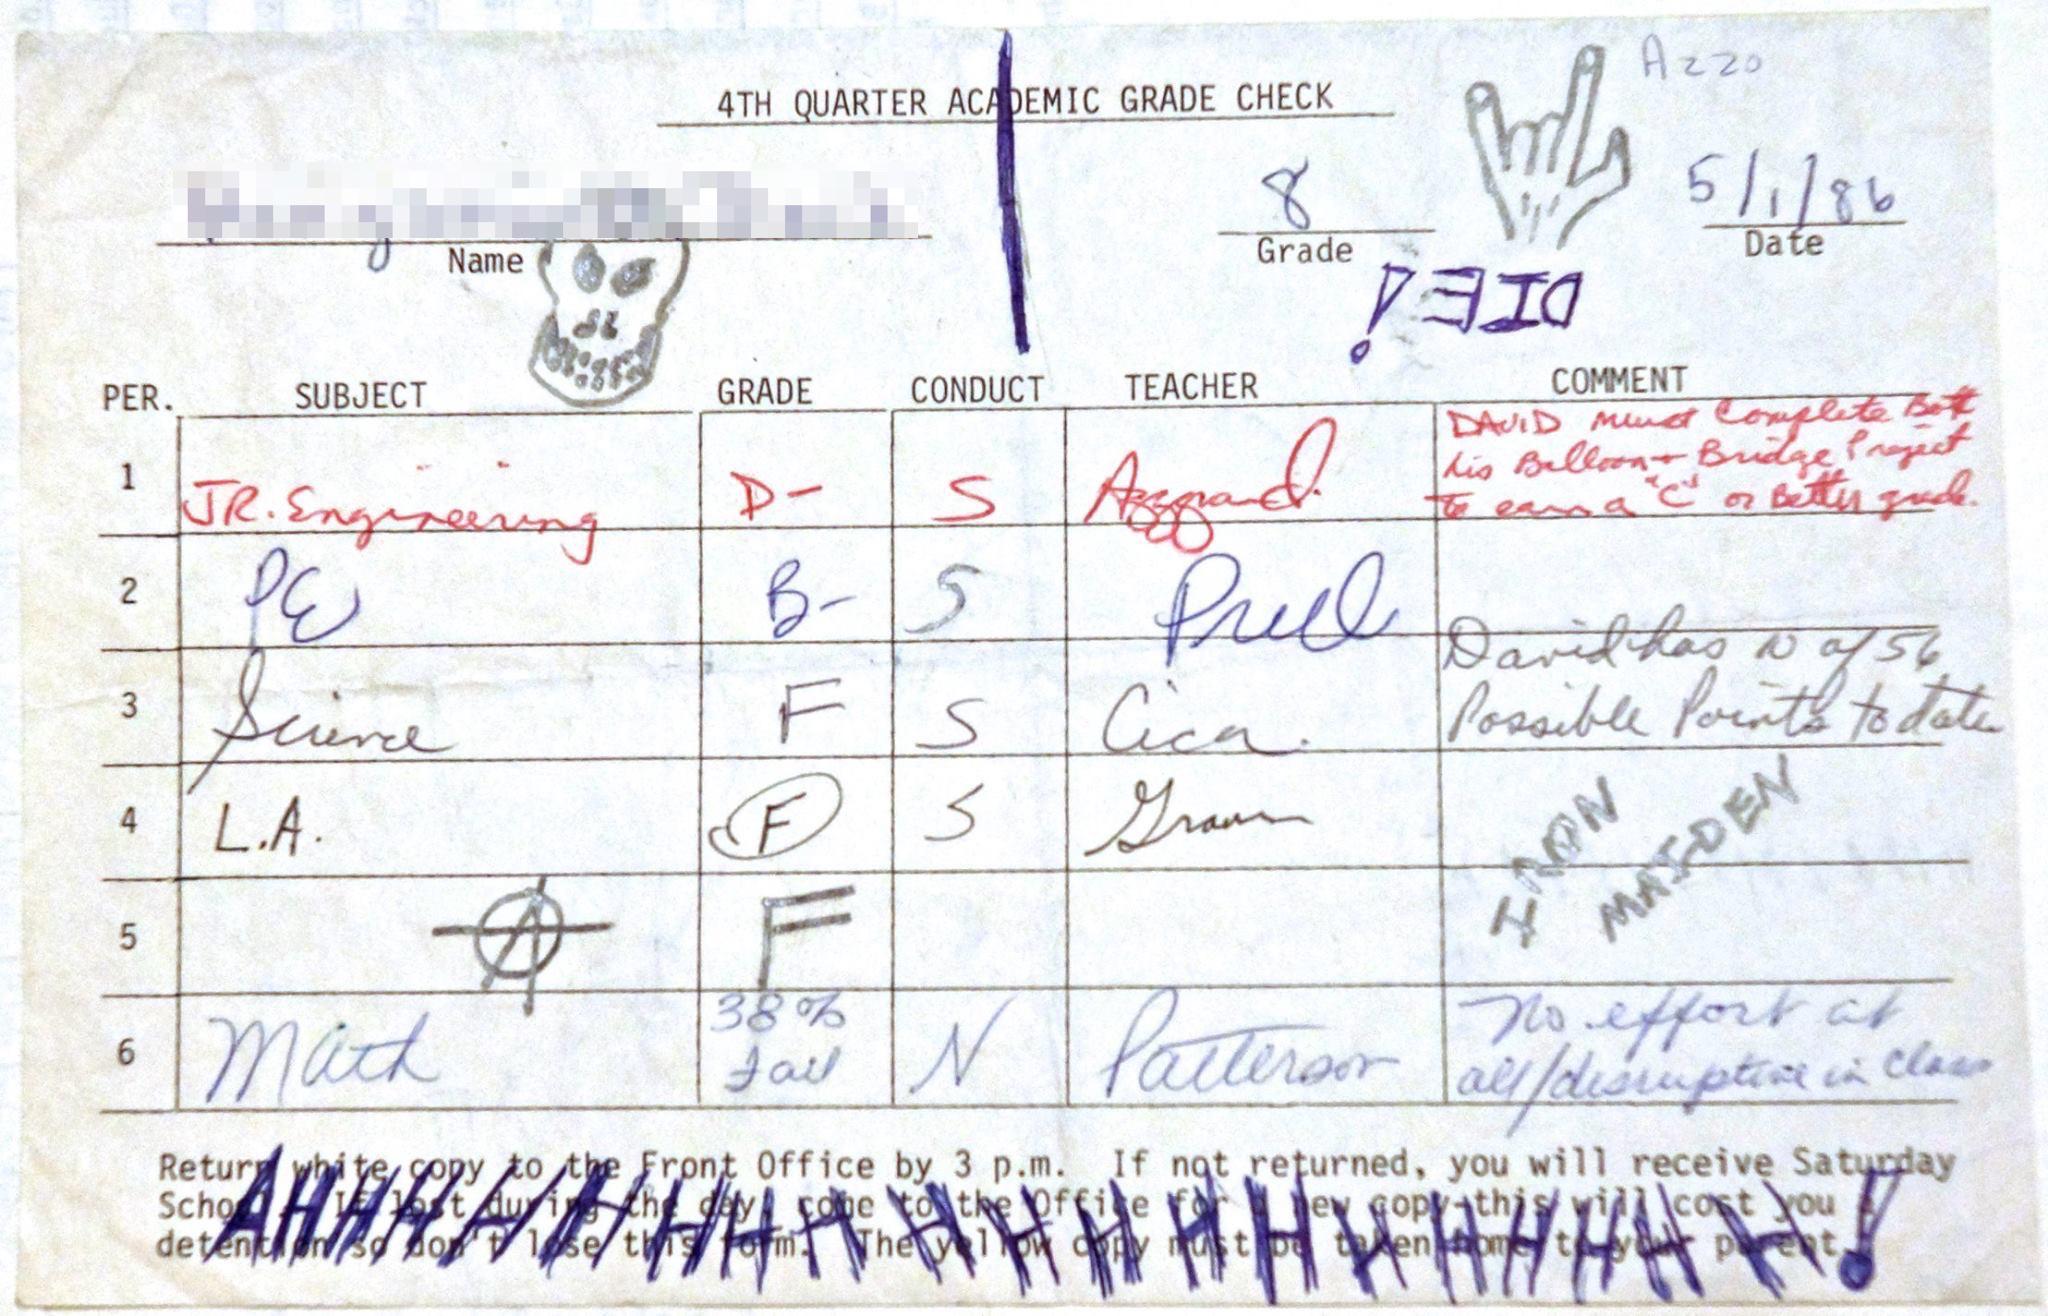 Azzo
4TH QUARTER ACADEMIC GRADE CHECK
8 5/1/86
Name Grade Date
DIE!
PER. SUBJECT GRADE CONDUCT TEACHER COMMENT
DAVID must Complete Both
his Balloon + Bridge Project
to earn a "C" or Better grade.
1 JR. Engineering D- S
2 PE B- S
David has 0 of 56
Possible Points to date
3 Science F S
4 L.A. F S
IRON
MAIDEN
5 A F
6 Math 38% Fail N Patterson
No effort at
all/disruptive in class
Return white copy to the Front Office by 3 p.m. If not returned, you will receive Saturday
School. If lost during the day, come to the Office for a new copy-this will cost you a
detention so don't lose this form. The yellow copy must be taken home to your parent.
AHHHHHHHHHHHHHHHHHHH!